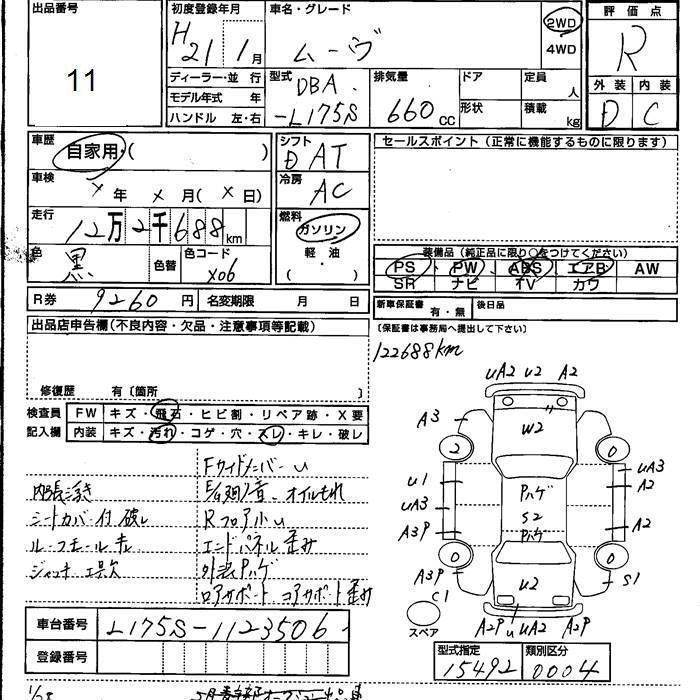 出品番号
11
初度登録年月
H 21 1 月
車名・グレード
ムーヴ
2WD
4WD
評価点
R
外装 内装
D C
ディーラー・並 行
モデル年式 年
ハンドル 左・右
型式
DBA
-L175S
排気量
660 cc
ドア
形状
定員
人
積載
kg
車歴
自家用・( )
車検
× 年 × 月( × 日)
走行
12万2千688 km
色
黒
色替
色コード
X06
シフト
D AT
冷房
AC
燃料
ガソリン
軽 油
・
( )
セールスポイント(正常に機能するものに限ります)
装備品(純正品に限り○をつけてください)
PS PW ABS エアB AW
SR ナビ TV カワ
R券 9260 円 名変期限 月 日
新車保証書 有・無 後日品
〔保証書は事務局へ提出して下さい〕
出品店申告欄(不良内容・欠品・注意事項等記載)
122688km
修復歴 有〔箇所 〕
検査員 FW キズ・飛石・ヒビ割・リペア跡・X要
記入欄 内装 キズ・汚れ・コゲ・穴・スレ・キレ・破レ
Fサイドメンバー U
内張浮き
オイルもれ
シートカバー付 破レ
Rフロア小U
ルーフモール
エンドパネル歪み
ジャッキ 工具欠
外装Pハゲ
ロアサポート コアサポート歪み
UA2 U2 A2
A3
W2
2 0
U1
UA3
Pハゲ
A2
UA3
S2
A3P
Pハゲ
A2
0 0
A3P
C1
U2
S1
スペア
A2P U UA2 A2P
車台番号 L175S-1123506
登録番号
型式指定 類別区分
15492 0004